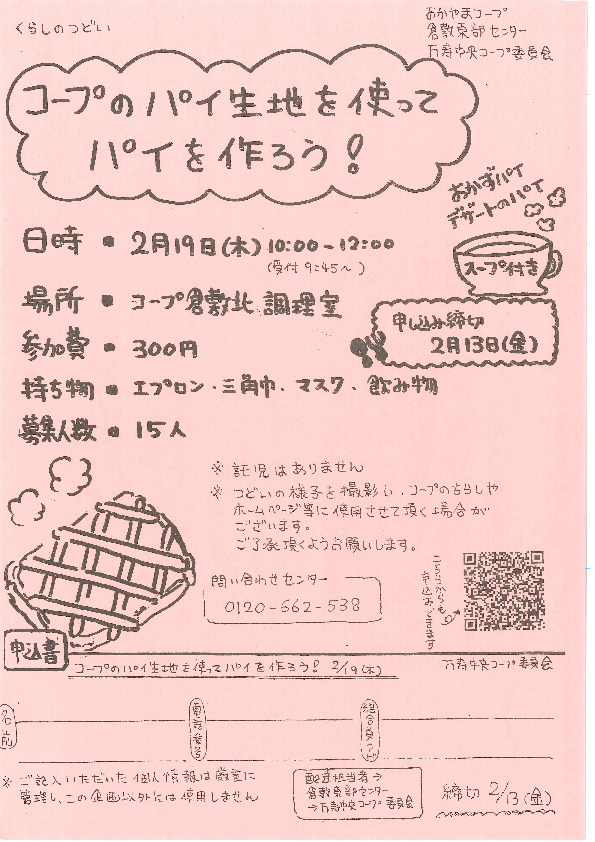 くらしのつどい
おかやまコープ
倉敷東部センター
万寿中央コープ委員会
コープのパイ生地を使って
パイを作ろう！
おかずパイ
デザートのパイ
スープ付き
日時 ・ 2月19日(木) 10:00-12:00
(受付 9:45〜)
場所 ・ コープ倉敷北 調理室
申し込み締切
2月13日(金)
参加費 ・ 300円
持ち物 ・ エプロン、三角巾、マスク、飲み物
募集人数 ・ 15人
※ 託児はありません
※ つどいの様子を撮影し、コープのちらしや
ホームページ等に使用させて頂く場合が
ございます。
ご了承頂くようお願いします。
問い合わせセンター
0120-662-538
こちらからも
申込みできます
申込書
コープのパイ生地を使ってパイを作ろう！ 2/19(木)
万寿中央コープ委員会
名前
電話番号
組合員コード
※ ご記入いただいた個人情報は厳重に
管理し、この企画以外には使用しません
配達担当者→
倉敷東部センター
→万寿中央コープ委員会
締切 2/13(金)